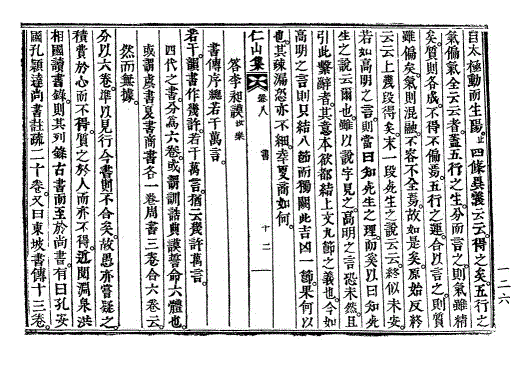 自太極動而生陽止四條異議云云得之矣五行之
氣偏氣全云云者蓋五行之生分而言之則氣雖精
矣質則各成不得不偏焉五行之運合以言之則質
雖偏矣氣則混融不容不全焉故如是矣原始反終
云云上幾段得矣末一段先生之說云云終似未安
若如高明之言則當日知先生之理而矣以日知先
生之說云爾也雖以說字見之高明之言恐未然且
引此繫辭者其意本欲都結上文九節之義也今如
高明之言則只結八節而獨闕此吉凶一節果何以
也其疎漏恐亦不細幸更商如何
仁山集 卷八 書 十二
答李相讀
書傳序總若干萬言
若干韻書作幾許若干萬言猶云幾許萬言
四代之書分爲六卷或謂訓誥典謨誓命六體也
或謂虞書夏書商書各一卷周書三卷合六卷云
然而無據
分以六卷準以見行今書則不合矣故愚亦嘗疑之
積費於心而不得質之於人而亦不得近閱淵泉洪
相國讀書錄則其列錄古書而至於尚書有曰孔安
國孔穎達尚書註疏二十卷又曰東坡書傳十三卷
一二六